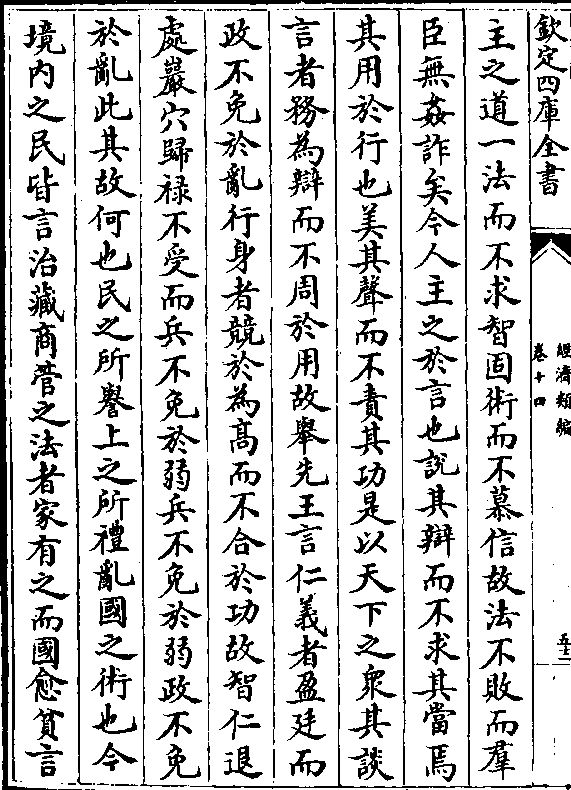 欽定四庫全書
經濟類編
卷十四
五十二
主之道一法而不求智固術而不慕信故法不敗而羣
臣無姦詐矣今人主之於言也說其辯而不求其當焉
其用於行也美其聲而不責其功是以天下之衆其談
言者務為辯而不周於用故舉先王言仁義者盈廷而
政不免於亂行身者競於為髙而不合於功故智仁退
處巖穴歸祿不受而兵不免於弱兵不免於弱政不免
於亂此其故何也民之所譽上之所禮亂國之術也今
境内之民皆言治藏商管之法者家有之而國愈貧言